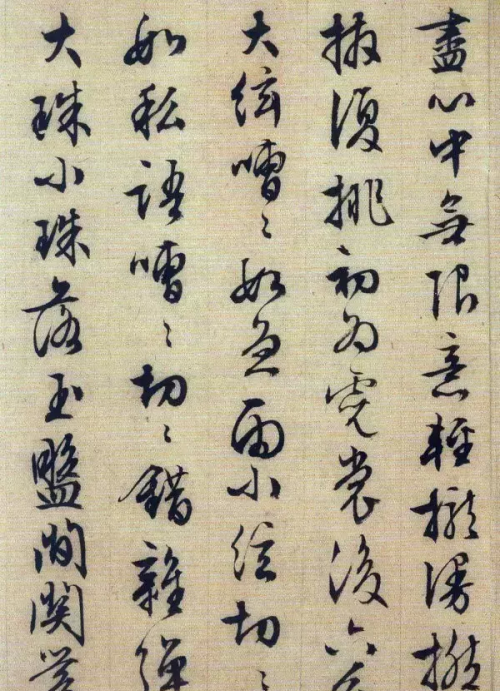 盡心中無限意輕攏漫撚
撥復挑初為霓裳後六
大絃嘈〻如急雨小絃切〻
如私語嘈〻切〻錯雜彈
大珠小珠落玉盤間関